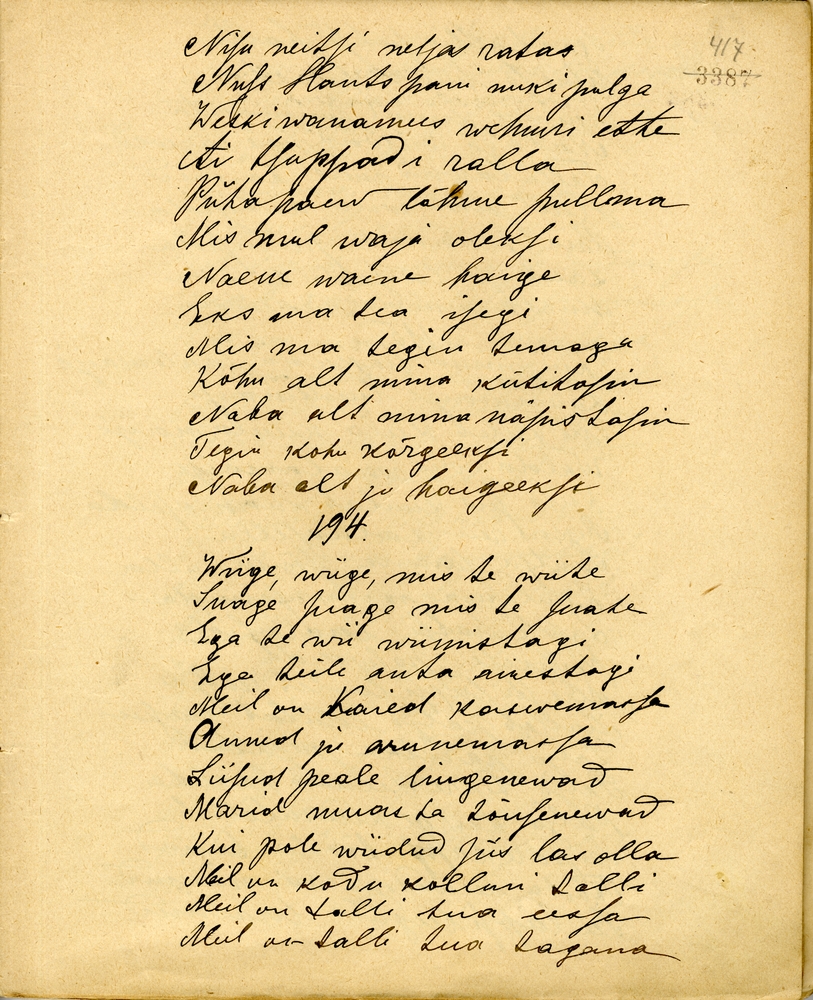 417.
3387
Nisu neitsi neljas ratas
Nuss Hants pani nuki pulga
Weskiwanamees wehmri ette
Ai tsuppadi ralla
Pühapaew lähme pulloma
Mis mul waja oleksi
Naene waene haige
Eks ma tea isegi
Mis ma tegin temaga
Kõhu alt mina kütitasin
Naba alt mina näpistasin
Tegin kohu kõrgeeksi
Naba alt ju haigeeksi
194.
Wiige, wiige, mis te wiite
Suage suage mis te suate
Ega te wii wiimistagi
Ega teile anta ainestagi
Meil on Kaied kaswemassa
Anned ju arunemassa
Liisud peale lingenewad
Marid muasta tõusenewad
Kui pole wiidud siis las olla
Meil on kodu kolluri talli
Meil on talli tua eessa
Meil on talli tua tagana